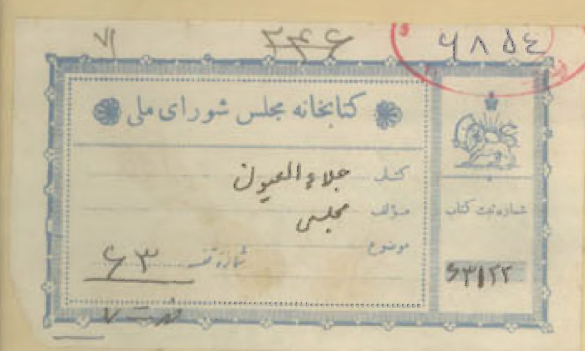 ۷۱
۲۴۶
۶۸۵۴
کتابخانه مجلس شورای ملی
کتاب جلاء العیون
مؤلف مجلسی
موضوع
شماره قفسه ۶۳
شماره ثبت کتاب
۶۳۱۲۲